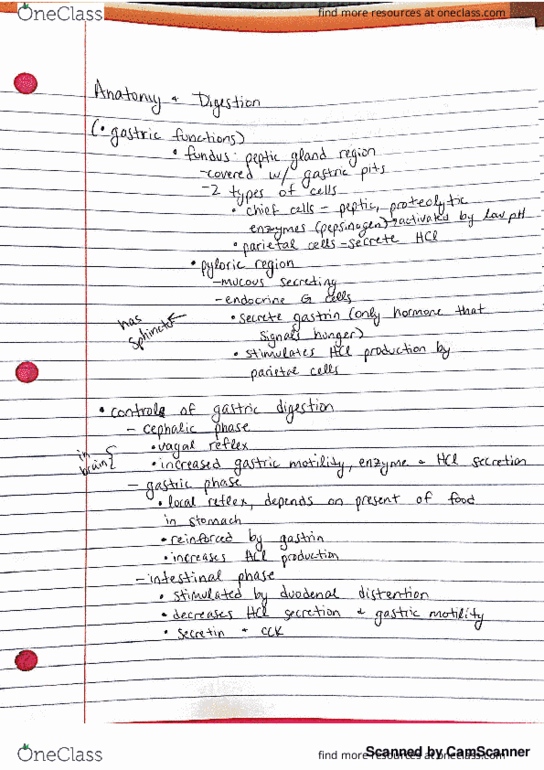 OneClass
find more resources at oneclass.com
Anatomy + Digestion
(• gastric functions)
• fundus: peptic gland region
- covered w/ gastric pits
- 2 types of cells
• chief cells - peptic, proteolytic
enzymes (pepsinogen) → activated by low pH
• parietal cells - secrete HCl
• pyloric region
- mucous secreting
- endocrine G cells
• secrete gastrin (only hormone that
signals hunger)
has
sphincter
• stimulates HCl production by
parietal cells
• controls of gastric digestion
- cephalic phase
• vagal reflex
in
brain
• increased gastric motility, enzyme + HCl secretion
- gastric phase
• local reflex, depends on present of food
in stomach
• reinforced by gastrin
• increases HCl production
- intestinal phase
• stimulated by duodenal distention
• decreases HCl secretion + gastric motility
• secretin + CCK
OneClass
find more resources at oneclass.com
Scanned by CamScanner